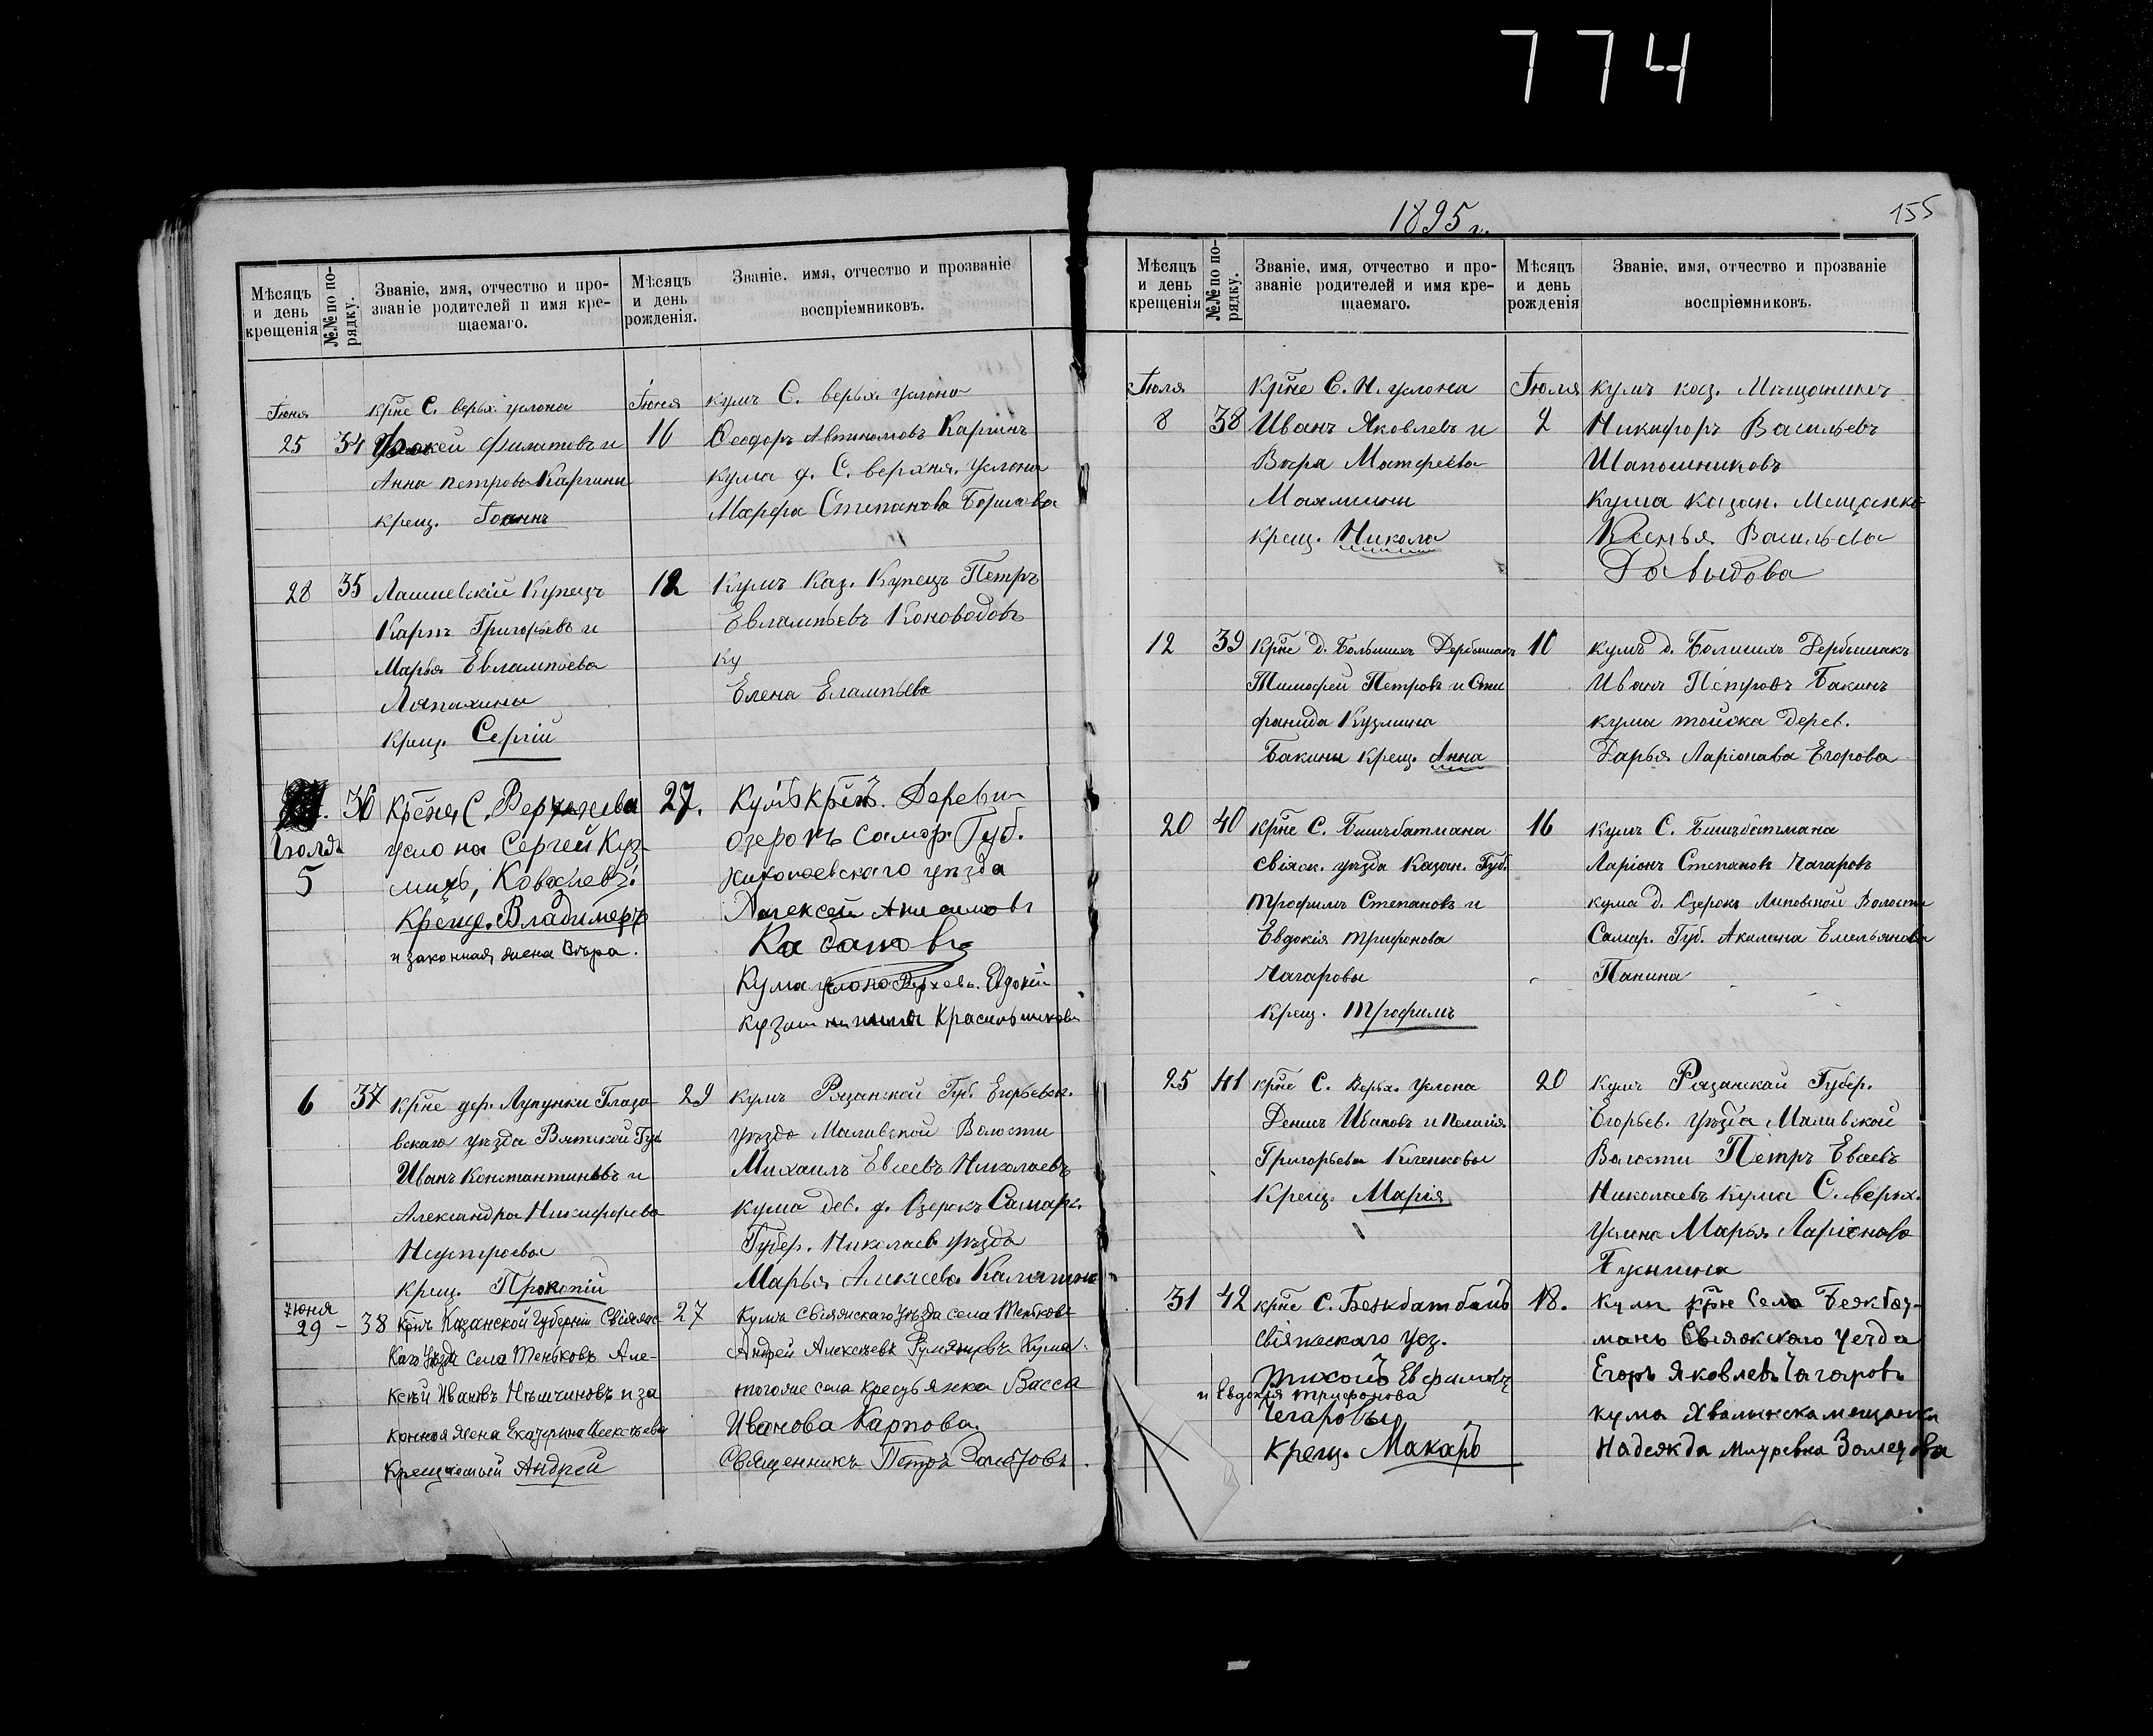 774
Мѣсяцъ и день крещенія
№№ по порядку.
Званіе, имя, отчество и про-
званіе родителей и имя кре-
щаемаго.
Мѣсяцъ
и день
рожденія.
Званіе, имя, отчество и прозваніе
воспріемниковъ.
Іюня
25
34
крne С. верх. услона
Фокей Филатовъ и
Анна петрова Каргины
крещ. Іоаннъ
Іюня
16
кумъ С. верх. Услона
Ѳеодоръ Автономовъ Каргинъ
кума д. С. верхня. Услона
Марфа Степанова
28
35
Лаишевскій Купецъ
Карпъ Григорьевъ и
Марья Евлампьева
Лапахины
крещ. Сергій
12
Кумъ Каз. Купецъ Петръ
Евлампьевъ Коноводовъ
ку
Елена Елампьева
Іюля
5
36
С. Верхнева
услона Сергей Куз-
мичъ, Ковалевъ.
Креще. Владимеръ
и законная жена Вѣра.
27.
Кумъ крестъ. Деревни
озерокъ Самар. Губ.
николаевскаго уѣзда
Алексей Анисимовъ
Кабановъ
Кума услона Верхнева. Евдокій
6
37
крne дер. Лупунки Глазо-
вскаго уѣзда Вятской Губ
Иванъ Константиновъ и
Александра Никифорова
Неустроевы
крещ. Прокопій
29
кумъ Рязанской Губ. Егорьевск.
уѣзда Маливской Волости
Михаилъ Евсеевъ Николаевъ
кума дев. д. Озерокъ Самарк.
Губер. Николаев. уѣзда
Марья Алексеева
Іюня
29 -
38
Казанской Губерніи Свіяжс-
каго Уѣзда села Теньковъ Але-
ксѣй Ивановъ Нѣмчиновъ и за
конная жена Екатерина Алексѣева
Крещаемый Андрей
27
Кумъ Свіяжскаго Уѣзда села Теньковъ
Андрей Алексѣевъ Румянцевъ Кума
тогоже села кресьянка Васса
Иванова Карпова.
Священникъ Петръ
1895 г.
155
Мѣсяцъ
и день
крещенія
№№ по порядку.
Званіе, имя, отчество и про-
званіе родителей и имя кре-
щаемаго.
Мѣсяцъ
и день
рожденія
Званіе, имя, отчество и прозваніе
воспріемниковъ.
Іюля
8
38
крne С. Н. услона
Иванъ Яковлевъ и
Вѣра Матфеева
Маямсины
крещ. Никола
Іюля
2
кумъ каз. Мѣщанинъ
Никифоръ Васильевъ
Шапошниковъ
кума казан. Мещанка
Ксенья Васильева
Давыдова
12
39
крne д. Большихъ Дербышакъ
Тимофей Петровъ и Сти
фанида Кузмина
Бакины крещ. Анна
10
кумъ д. Болшихъ Дербышакъ
Иванъ Петровъ Бакинъ
кума тойжа дерев.
Дарья Ларіонава Егорова
20
40
крne С. Бишъбатмана
свіяж. уѣзда Казан. Губ.
Трофимъ Степановъ и
Евдокія Трифонова
Чагаровы
крещ. Трофимъ
16
кумъ С. Бишъбатмана
Ларіонъ Степановъ Чагаровъ
кума д. Озерокъ Липовской Волости
Самар. Губ. Акилина Емельянова
Панина
25
41
крne С. Верх. Услона
Денисъ Ивановъ и Пелагія
Григорьева Кленковы
Крещ. Марія
20
кумъ Рязанскай Губер.
Егорьев. уѣзда Маливской
Волости Петръ Евсеевъ
Николаевъ кума С. верх.
Услона Марья Ларіонова
Пуснина
31
42
крne С.
свіяжскаго уез.
Тихонъ Евфимовъ
и Евдокія Трифонова
Чегаровы
Крещ. Макаръ
18.
Кумъ крне Села Бежбат-
манъ Свіяжскаго Уезда
Егоръ Яковлевъ Чагаровъ
кума Хвалынска мещанка
Надежда